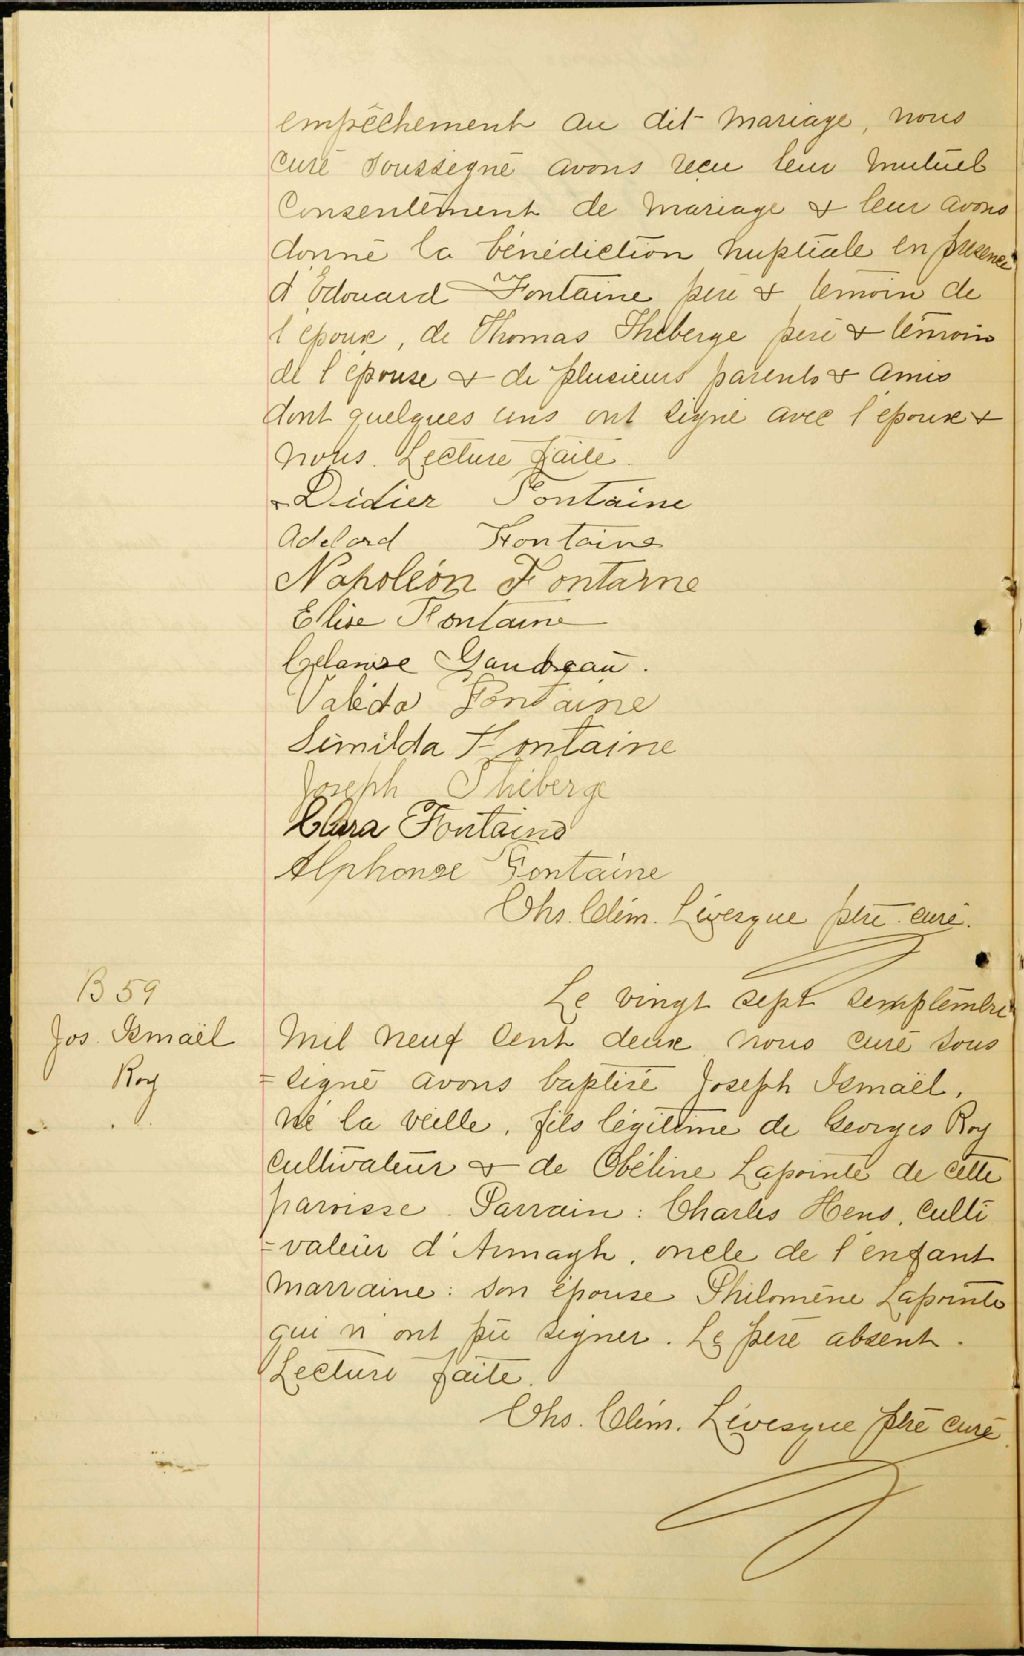 empêchement au dit mariage, nous
curé soussigné avons reçu leur mutuel
consentement de mariage & leur avons
donné la bénédiction nuptiale en présence
d'Edouard Fontaine père & témoin de
l'époux, de Thomas Théberge père & témoin
de l'épouse & de plusieurs parents & amis
dont quelques uns ont signé avec l'époux &
nous. Lecture faite.
Didier Fontaine
Adelard Fontaine
Napoléon Fontaine
Elise Fontaine
Gaudreau.
Valéda Fontaine
Similda Fontaine
Joseph Théberge
Clara Fontaine
Alphonse Fontaine
Chs. Clém. Lévesque ptre curé.
B 59
Jos. Ismaël
Roy
Le vingt sept semptembre
mil neuf cent deux nous curé sous
=signé avons baptisé Joseph Ismaël,
né la veille, fils légitime de Georges Roy
cultivateur & de Obéline Lapointe de cette
paroisse. Parrain : Charles Hens, culti
=vateur d'Armagh, oncle de l'enfant
marraine : son épouse Philomène Lapointe
qui n'ont pu signer. Le père absent.
Lecture faite.
Chs. Clém. Lévesque ptre curé